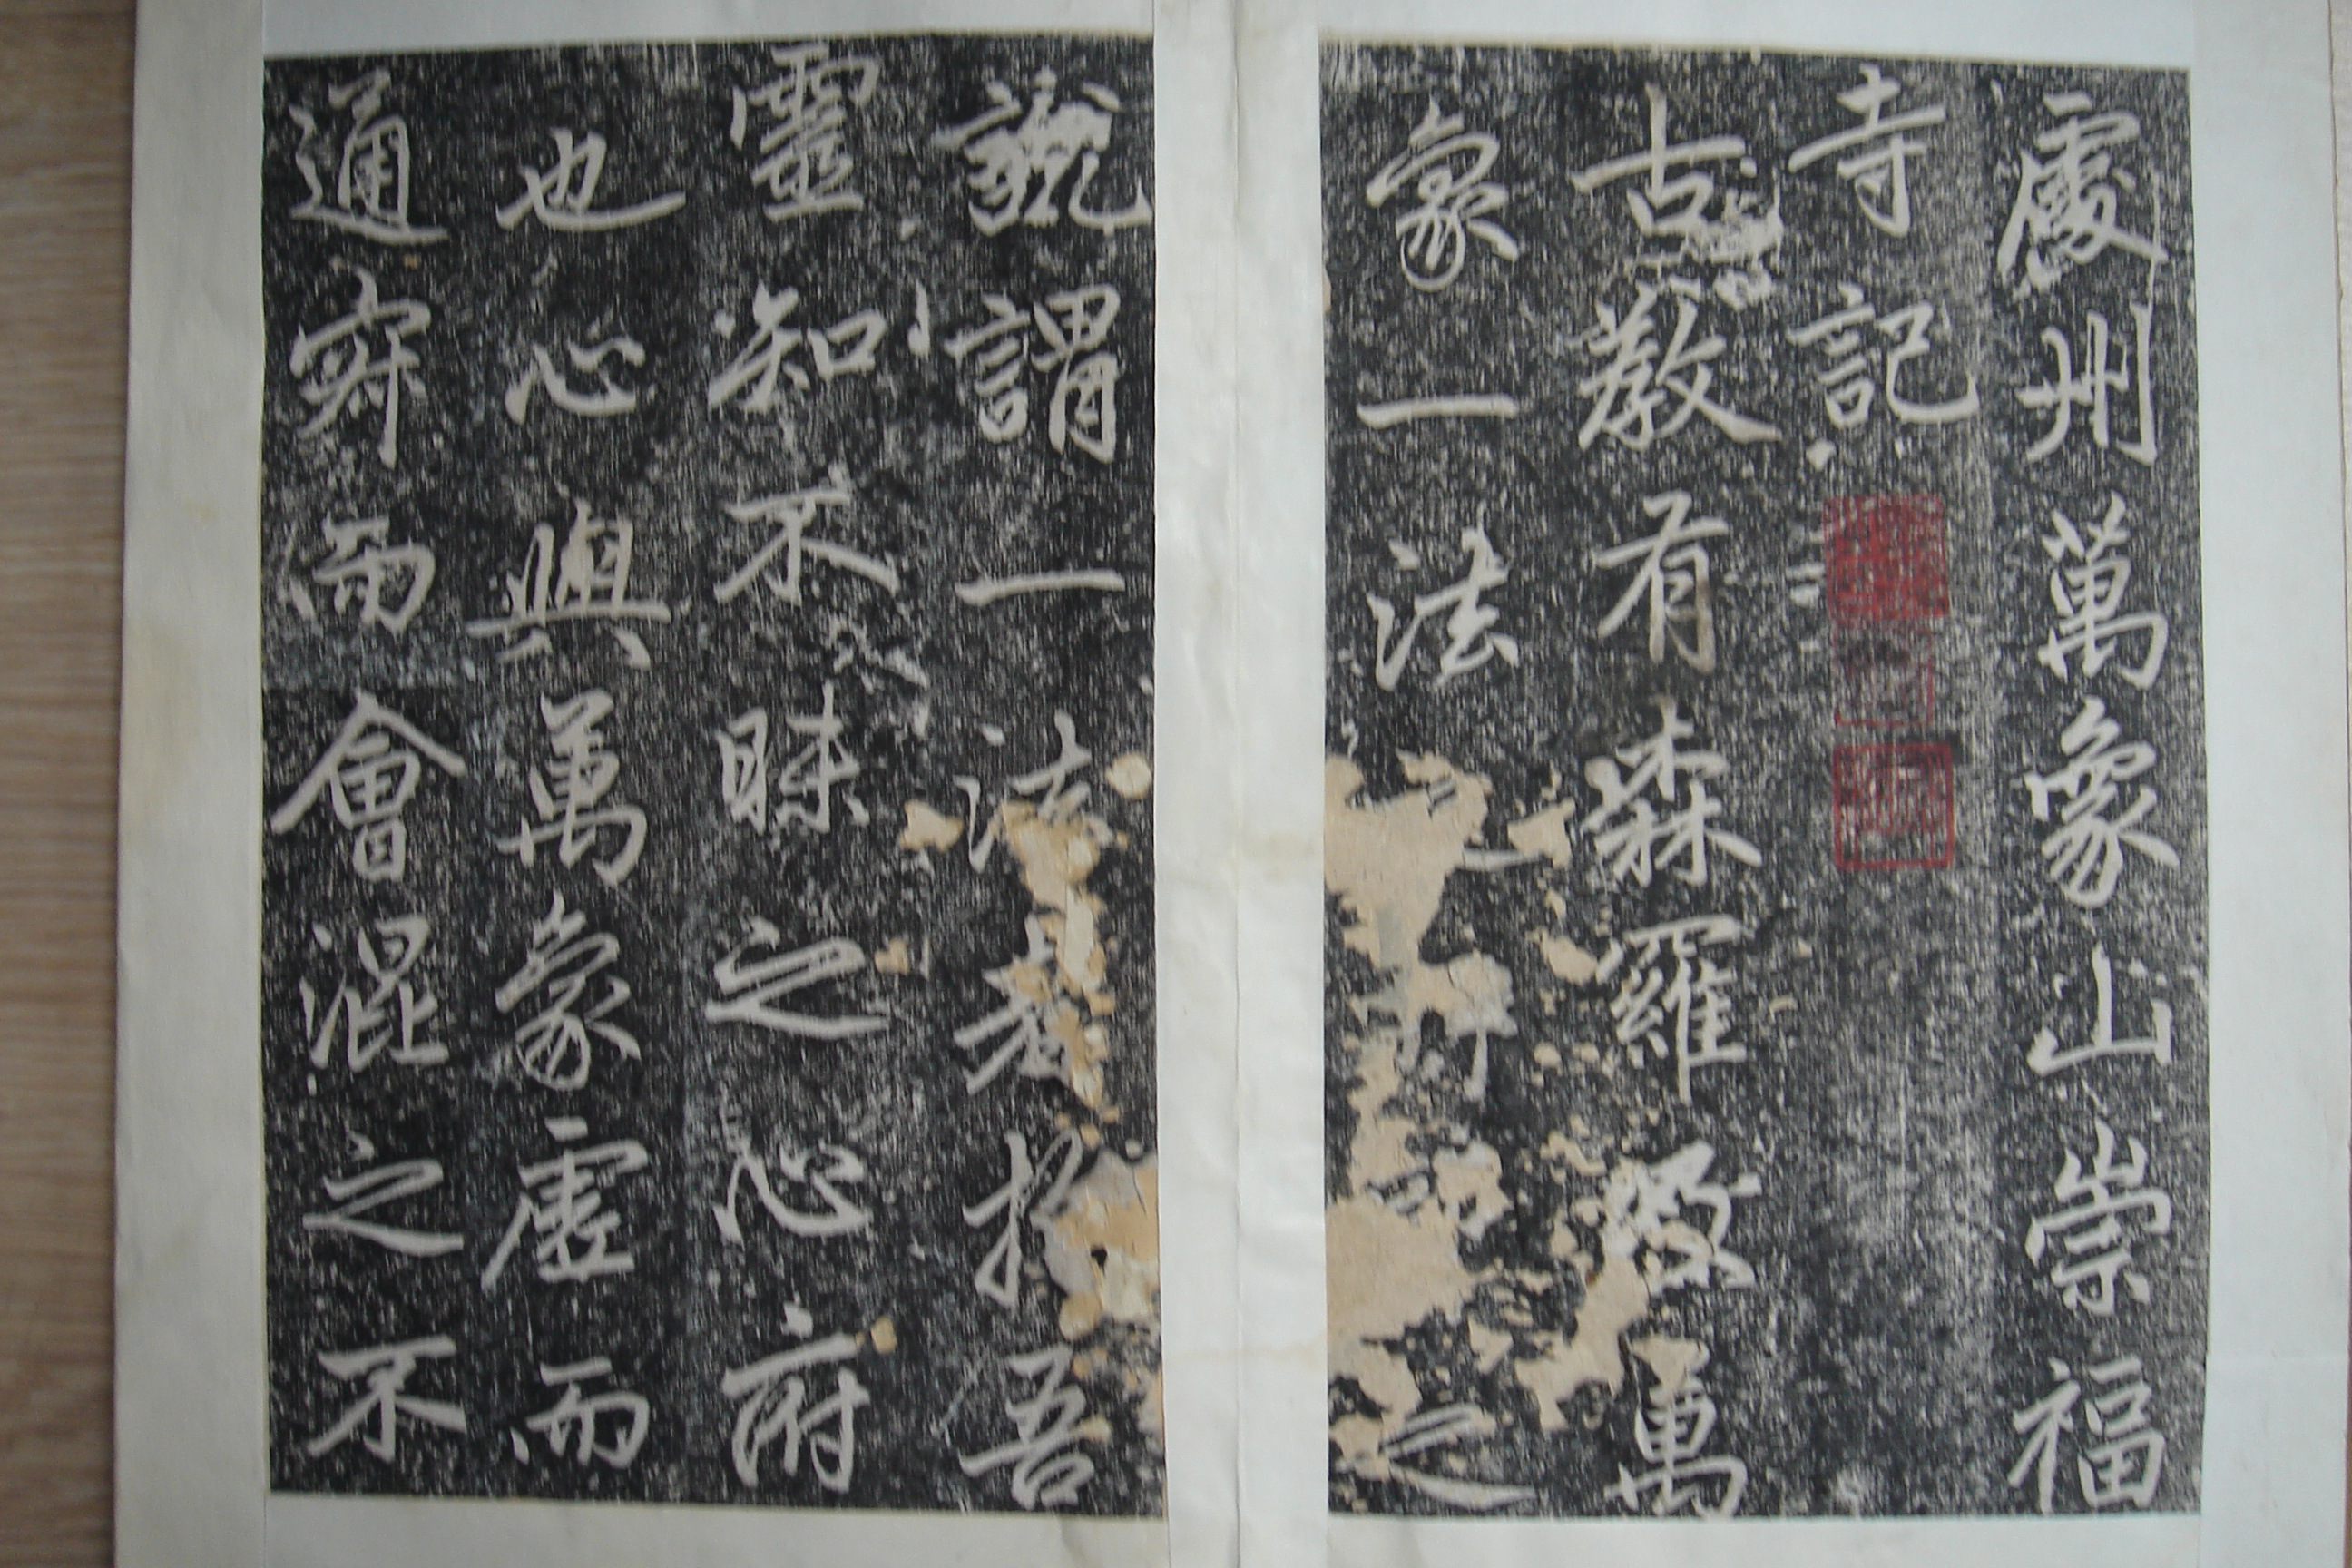 處州萬象山崇福
寺記
古教有森羅萬
象一法之
說謂一法者指吾
靈知不昧之心府
也心與萬象虛而
通寂而會混之不